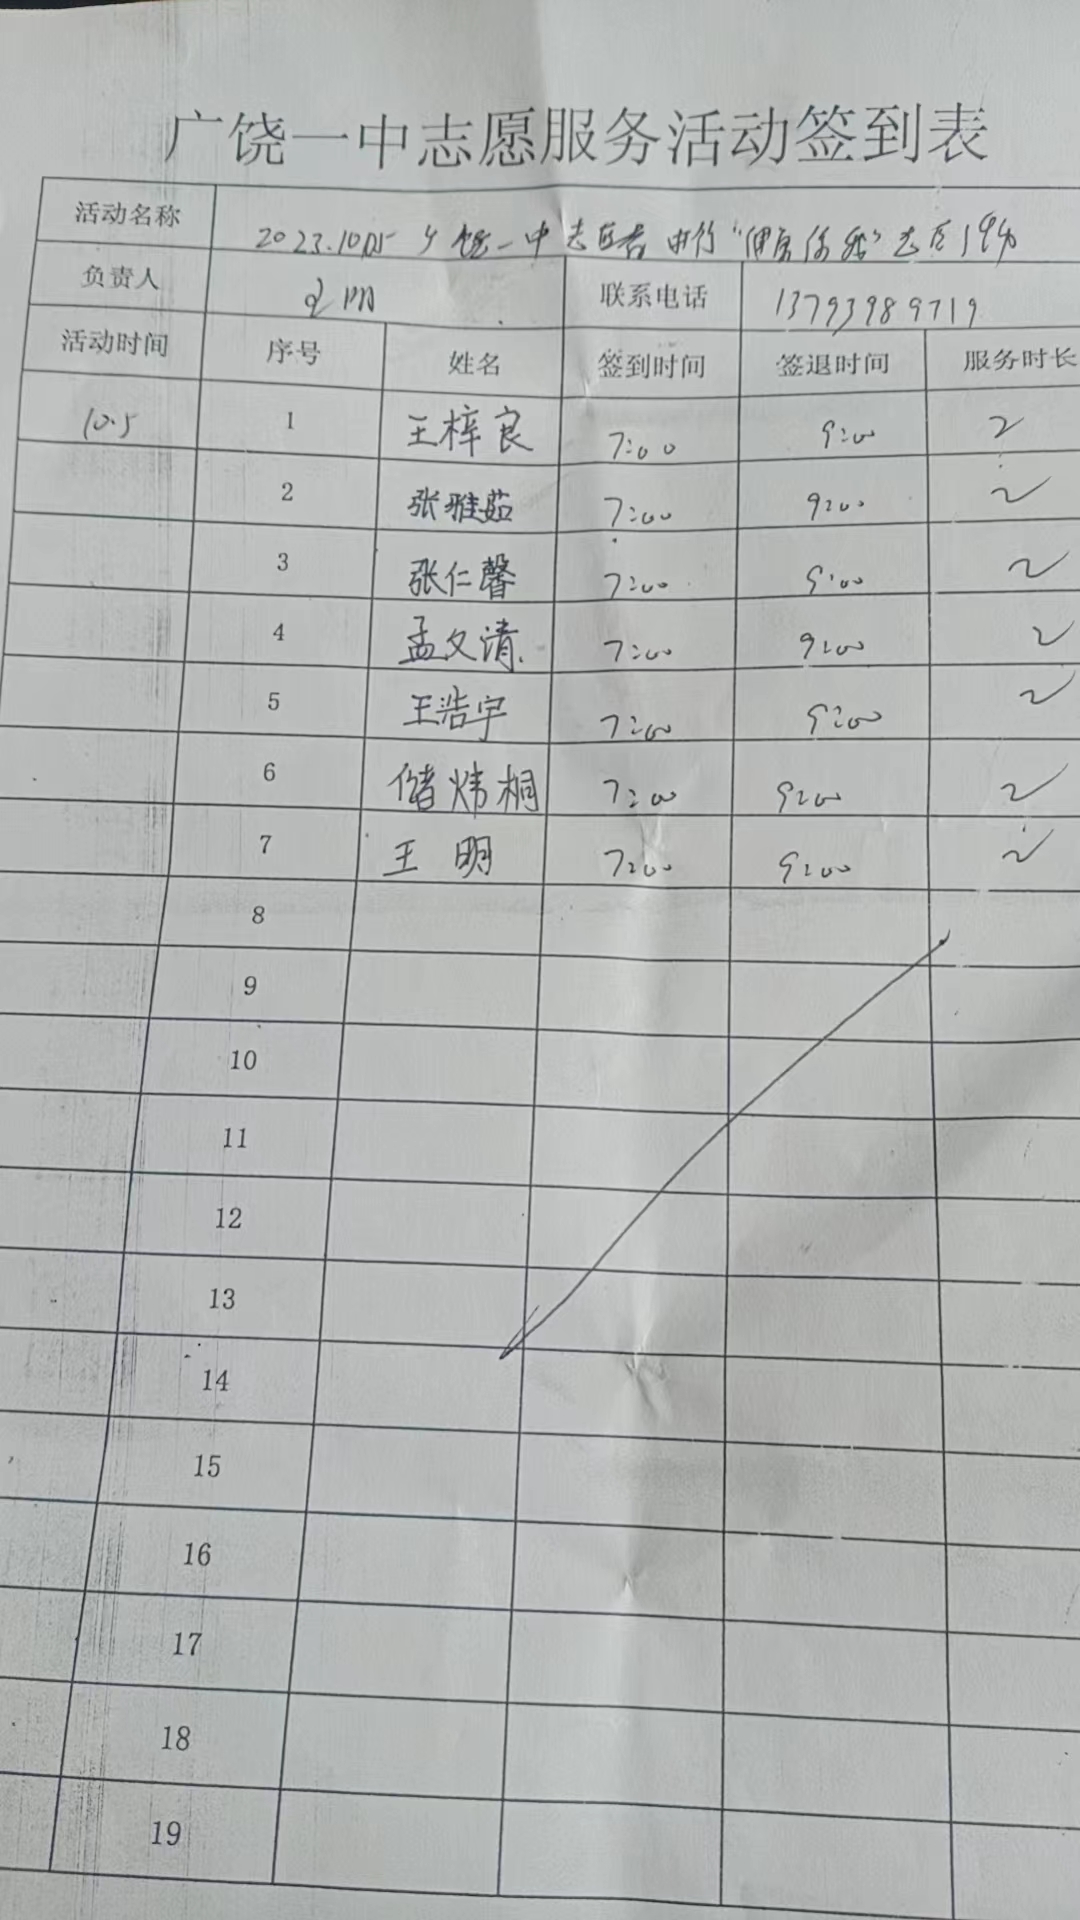 广饶一中志愿服务活动签到表
活动名称 2023.10.05 广饶一中志愿者进行“健康你我”志愿活动
负责人 王明 联系电话 13793989719
活动时间 序号 姓名 签到时间 签退时间 服务时长
10.5 1 王梓良 7:00 9:00 2
2 张雅茹 7:00 9:00 2
3 张仁馨 7:00 9:00 2
4 孟文清 7:00 9:00 2
5 王浩宇 7:00 9:00 2
6 储炜桐 7:00 9:00 2
7 王明 7:00 9:00 2
8
9
10
11
12
13
14
15
16
17
18
19